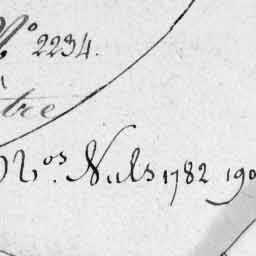 N.º 2234.
tre
N.os Nuls 1782 190